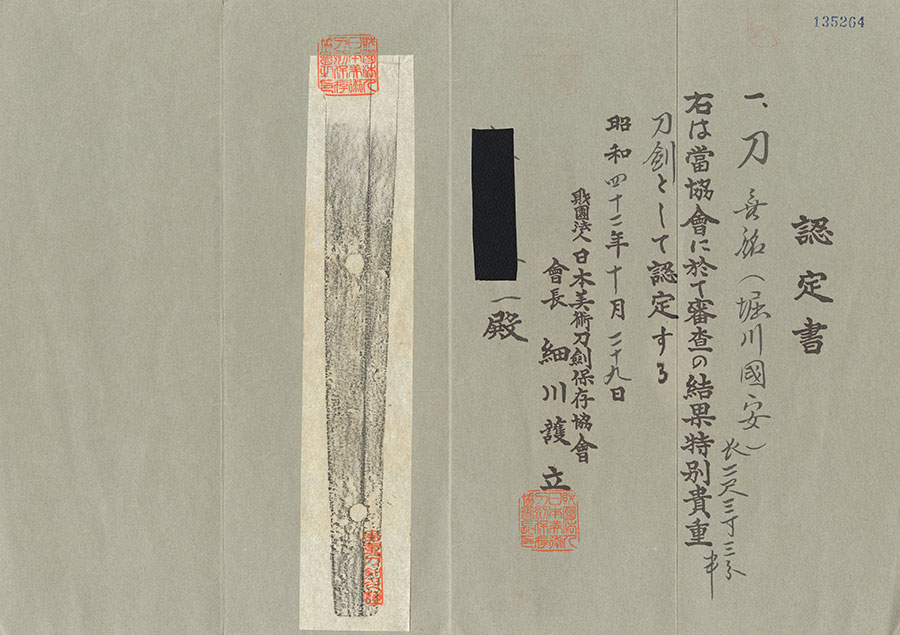 135264
認定書
一、刀 無銘(堀川國安)長二尺三寸三分半
右は當協會に於て審査の結果特別貴重
刀劍として認定する
昭和四十二年十月二十九日
財團法人日本美術刀劍保存協會
會長 細川護立
一殿